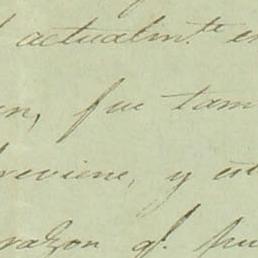 actualm.te en
en, fue tam
previene, y est
razon q.e fue